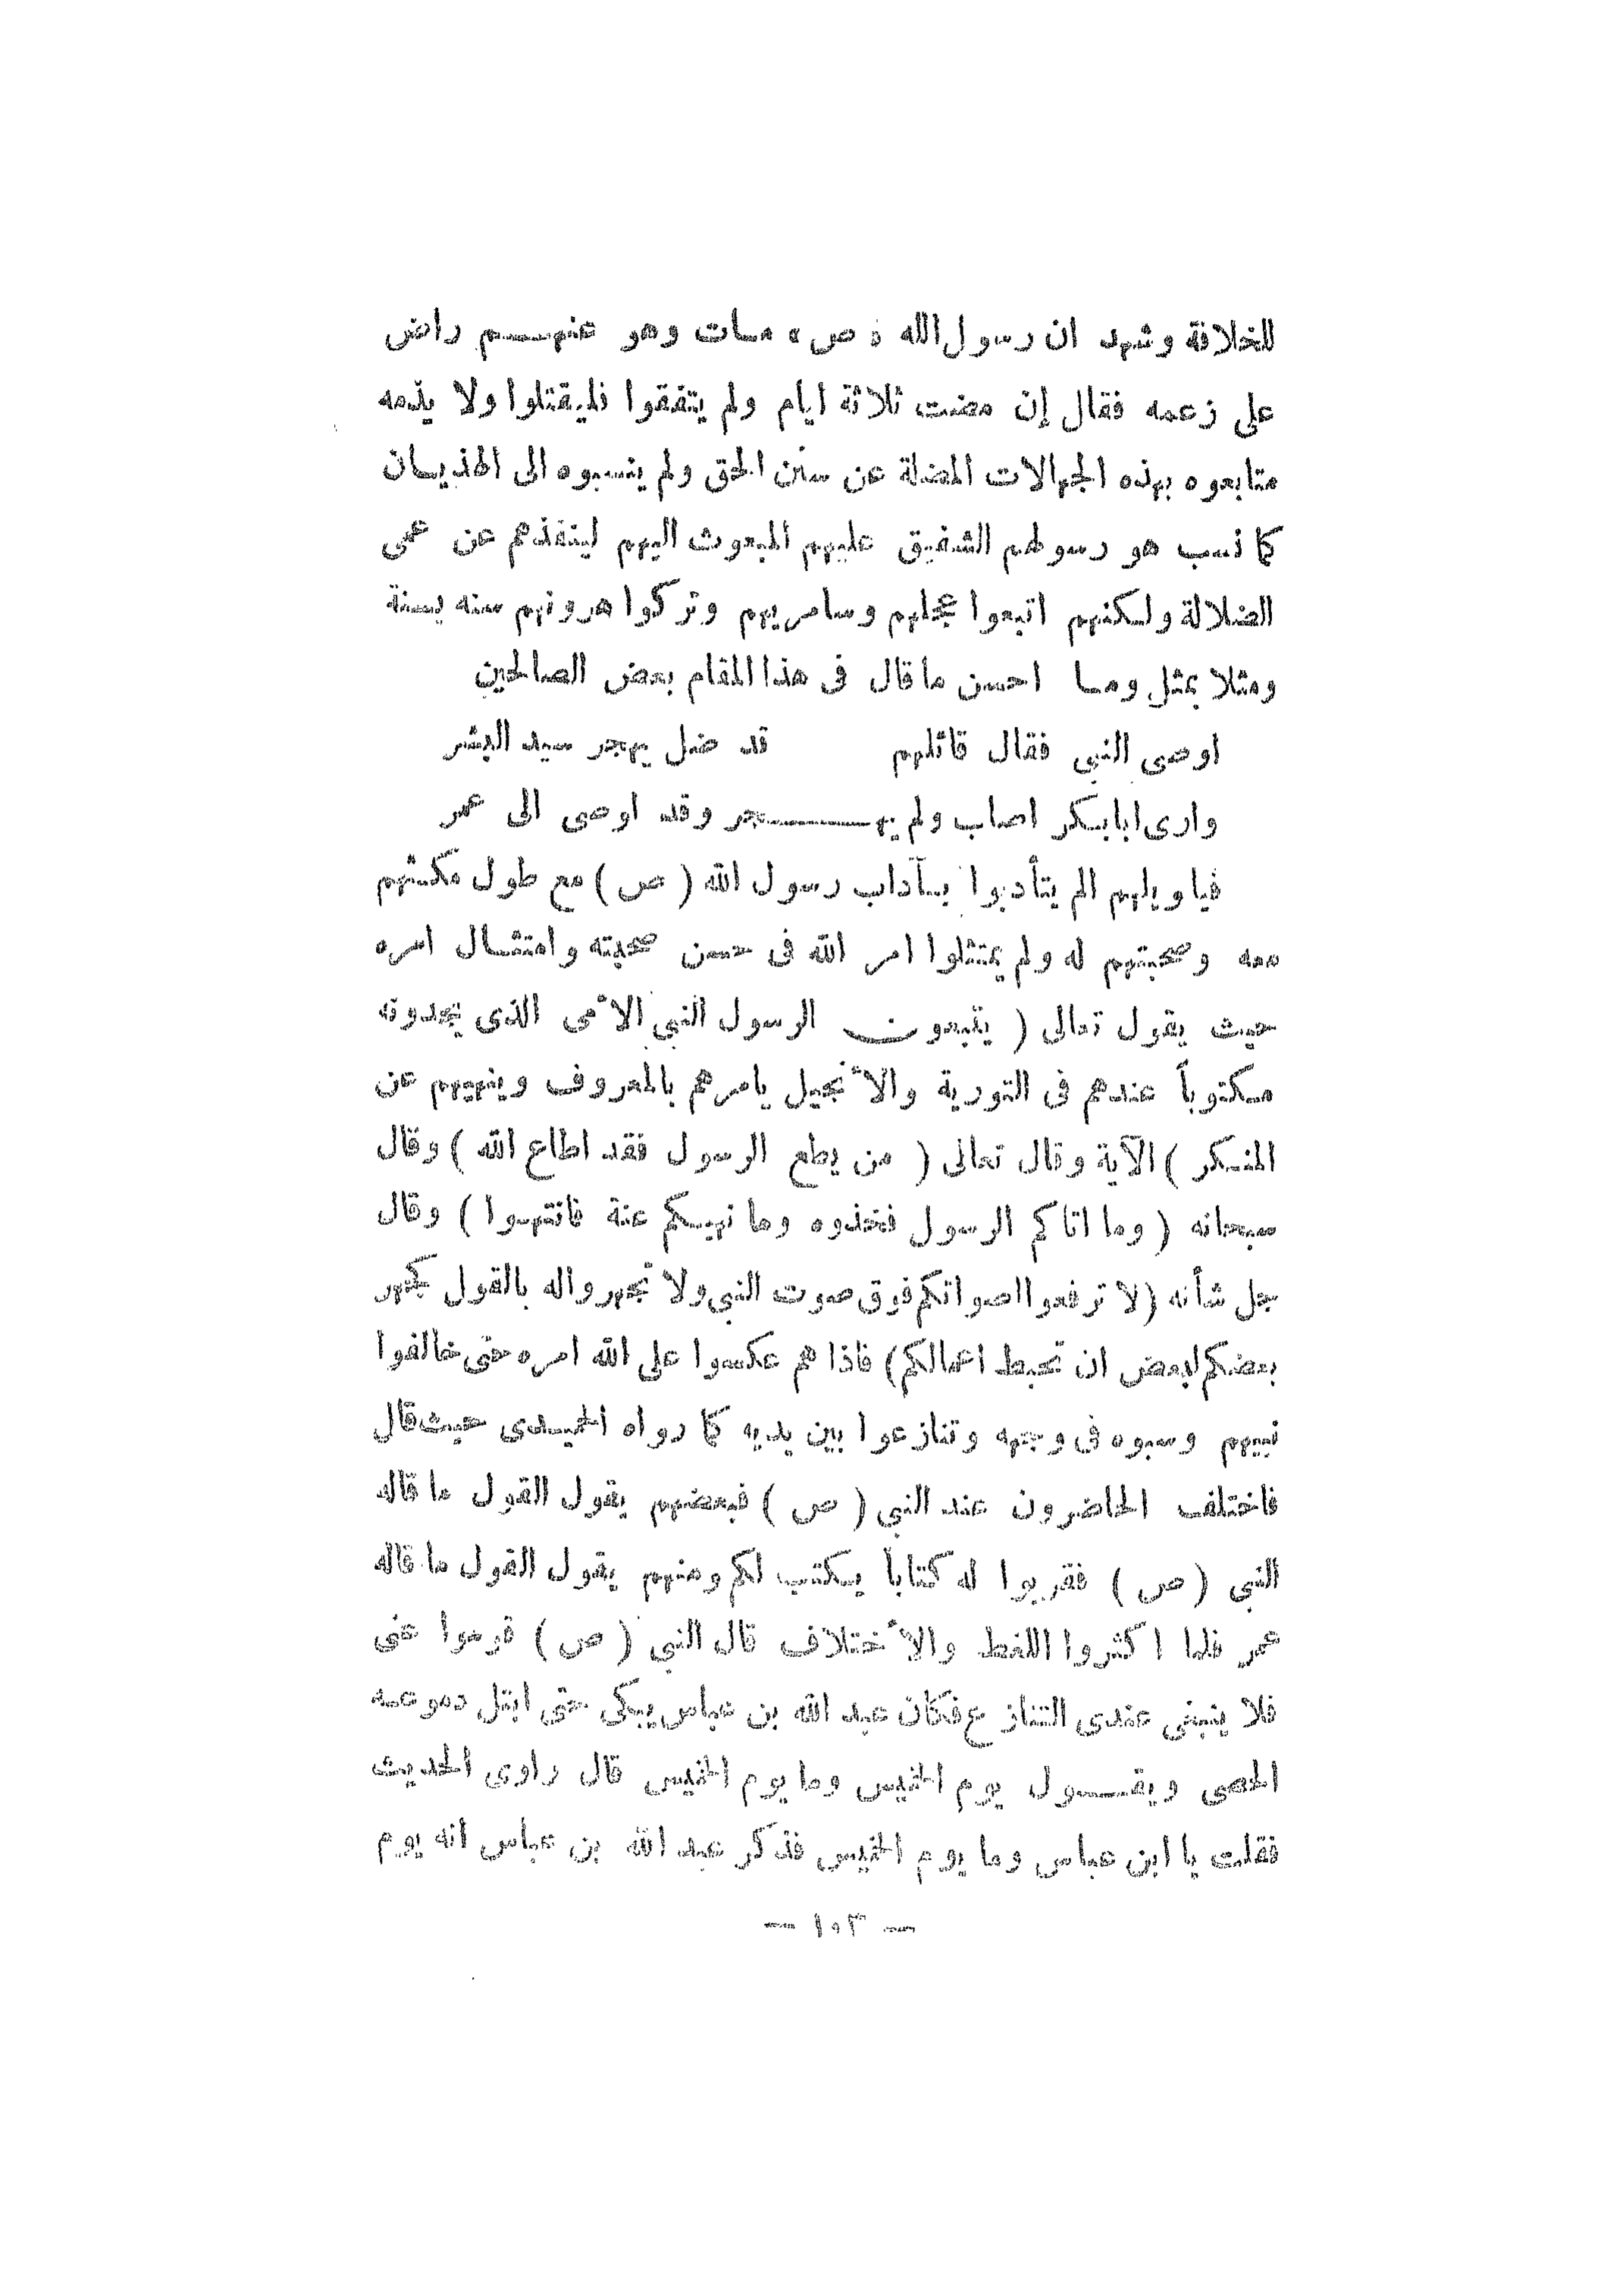 للخلافة وشهد ان رسول الله « ص » مات وهو عنهم راض
على زعمه فقال إن مضت ثلاثة ايام ولم يتفقوا فليقتلوا ولا يذمه
متابعوه بهذه الجهالات المضلة عن سنن الحق ولم ينسبوه الى الهذيان
كما نسب هو رسولهم الشفيق عليهم المبعوث اليهم لينقذهم عن عمى
الضلالة ولكنهم اتبعوا عجلهم وسامريهم وتركوا هرونهم سنه بسنة
ومثلا بمثل وما احسن ما قال فى هذا المقام بعض الصالحين
اوصى النبي فقال قائلهم قد ضل يهجر سيد البشر
وارى ابابكر اصاب ولم يهجر وقد اوصى الى عمر
فيا ويلهم الم يتأدبوا بآداب رسول الله ( ص ) مع طول مكثهم
معه وصحبتهم له ولم يمتثلوا امر الله فى حسن صحبته وامتثال امره
حيث يقول تعالى ( يتبعون الرسول النبي الأمى الذى يجدونه
مكتوباً عندهم فى التورية والأنجيل يامرهم بالمعروف وينهيهم عن
المنكر ) الآية وقال تعالى ( من يطع الرسول فقد اطاع الله ) وقال
سبحانه ( وما اتاكم الرسول فخذوه وما نهيكم عنة فانتهوا ) وقال
جل شأنه ( لا ترفعوا اصواتكم فوق صوت النبي ولا تجهروا له بالقول كجهر
بعضكم لبعض ان تحبط اعمالكم ) فاذا هم عكسوا على الله امره حتى خالفوا
نبيهم وسبوه فى وجهه وتنازعوا بين يديه كما رواه الحميدى حيث قال
فاختلف الحاضرون عند النبي ( ص ) فبعضهم يقول القول ما قاله
النبي ( ص ) فقربوا له كتاباً يكتب لكم ومنهم يقول القول ما قاله
عمر فلما اكثروا اللغط والأختلاف قال النبي ( ص ) قوموا عنى
فلا ينبغى عندى التنازع فكان عبد الله بن عباس يبكى حتى ابتل دموعه
الحصى ويقول يوم الخميس وما يوم الخميس قال راوى الحديث
فقلت يا ابن عباس وما يوم الخميس فذكر عبد الله بن عباس انه يوم
— ١٠٣ —